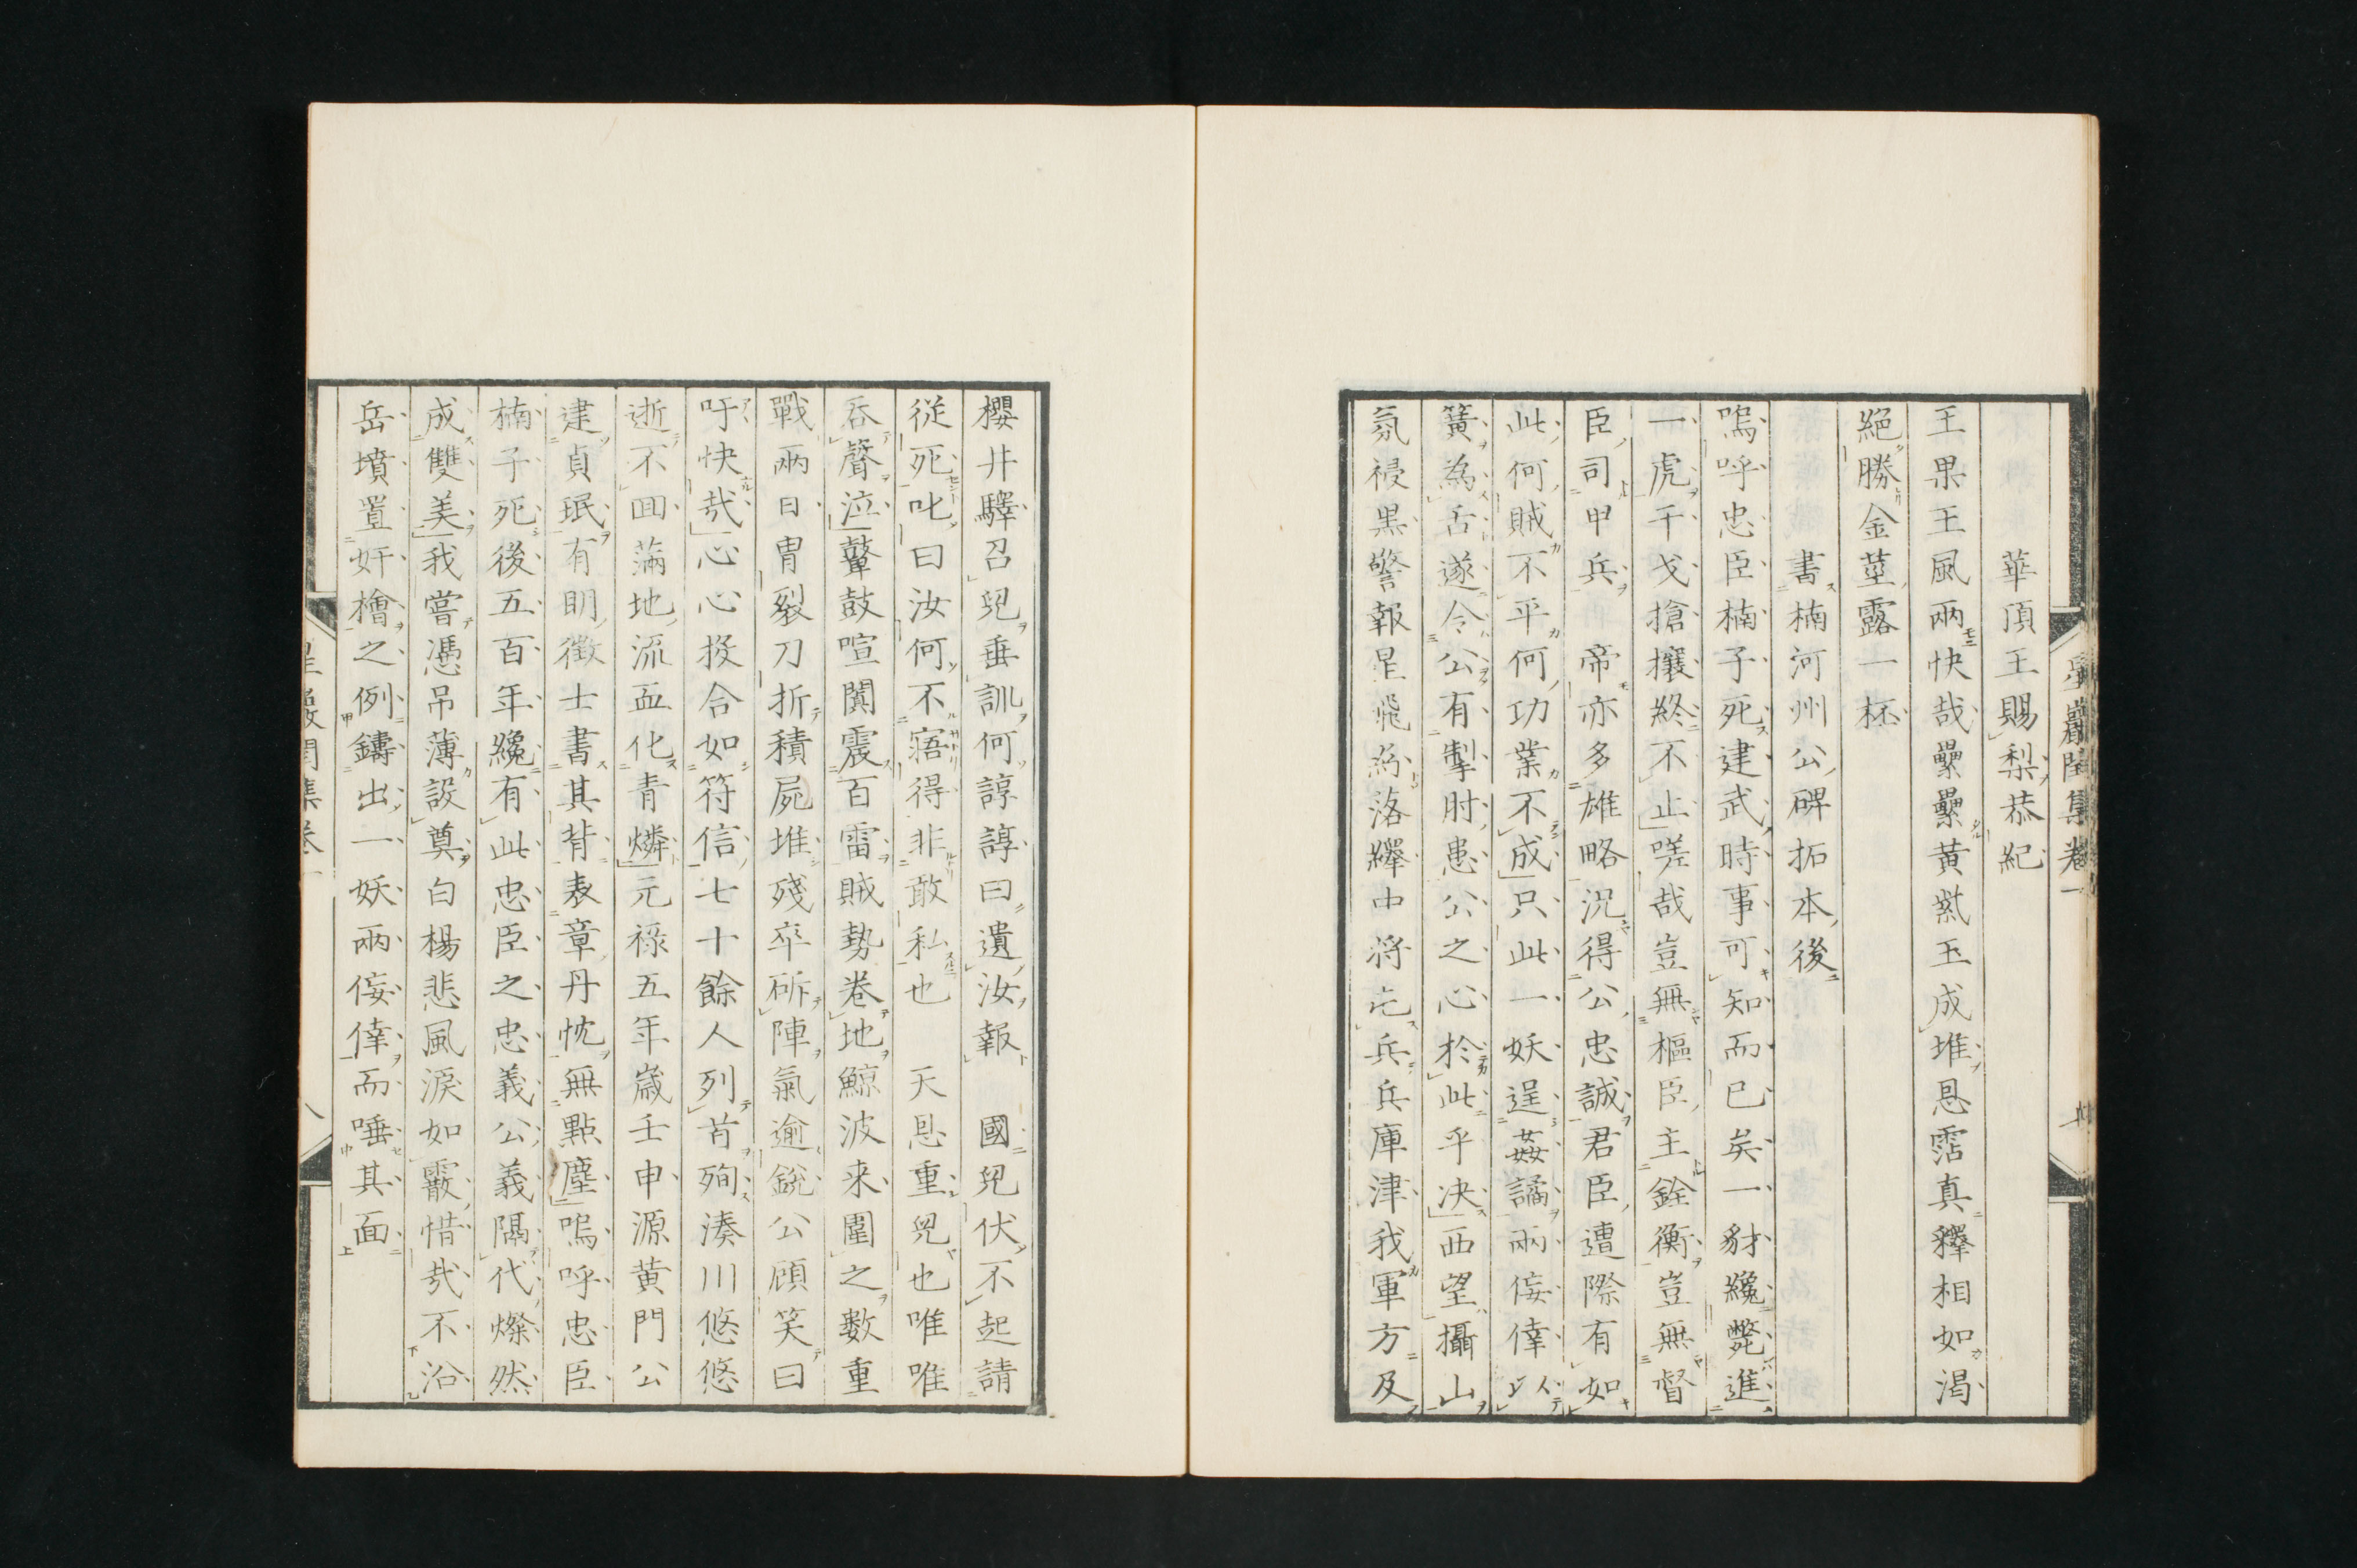 華頂王賜梨恭紀
王果王風兩快哉纍纍黄紫玉成堆恩霑真釋相如渇
絕勝金莖露一杯
書楠河州公碑拓本後
嗚呼忠臣楠子死建武時事可知而已矣一豺纔斃進
一虎干戈搶攘終不止嗟哉豈無樞臣主銓衡豈無督
臣司甲兵帝亦多雄略況得公忠誠君臣遭際有如
此何賊不平何功業不成只此一妖逞姦譎兩侫倖以
簧為舌遂令公有掣肘患公之心於此乎決西望攝山
氛祲黒警報星飛為落繹中將屯兵兵庫津我軍方及
櫻井驛召兒垂訓何諄諄曰遺汝報國兒伏不起請
従死叱曰汝何不寤得非敢私也天恩重兒也唯唯
呑聲泣鼙鼓喧闐震百雷賊勢卷地鯨波来圍之數重
戰兩日胄裂刀折積屍堆殘卒斫陣氣逾銳公顧笑曰
吁快哉心心投合如符信七十餘人列首殉湊川悠悠
逝不回滿地流血化青燐元祿五年歳壬申源黄門公
建貞珉有明徴士書其背表章丹忱無點塵嗚呼忠臣
楠子死後五百年纔有此忠臣之忠義公義隔代燦然
成雙美我嘗憑吊薄設奠白楊悲風淚如霰惜哉不沿
岳墳置奸檜之例鑄出一妖兩侫倖而唾其面